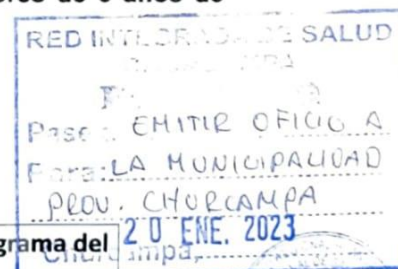 de 6 años de
RED INTEGRADA DE SALUD
Pase: EMITIR OFICIO A
Para: LA MUNICIPALIDAD
PROV. CHURCAMPA
grama del
20 ENE. 2023
Churcampa,